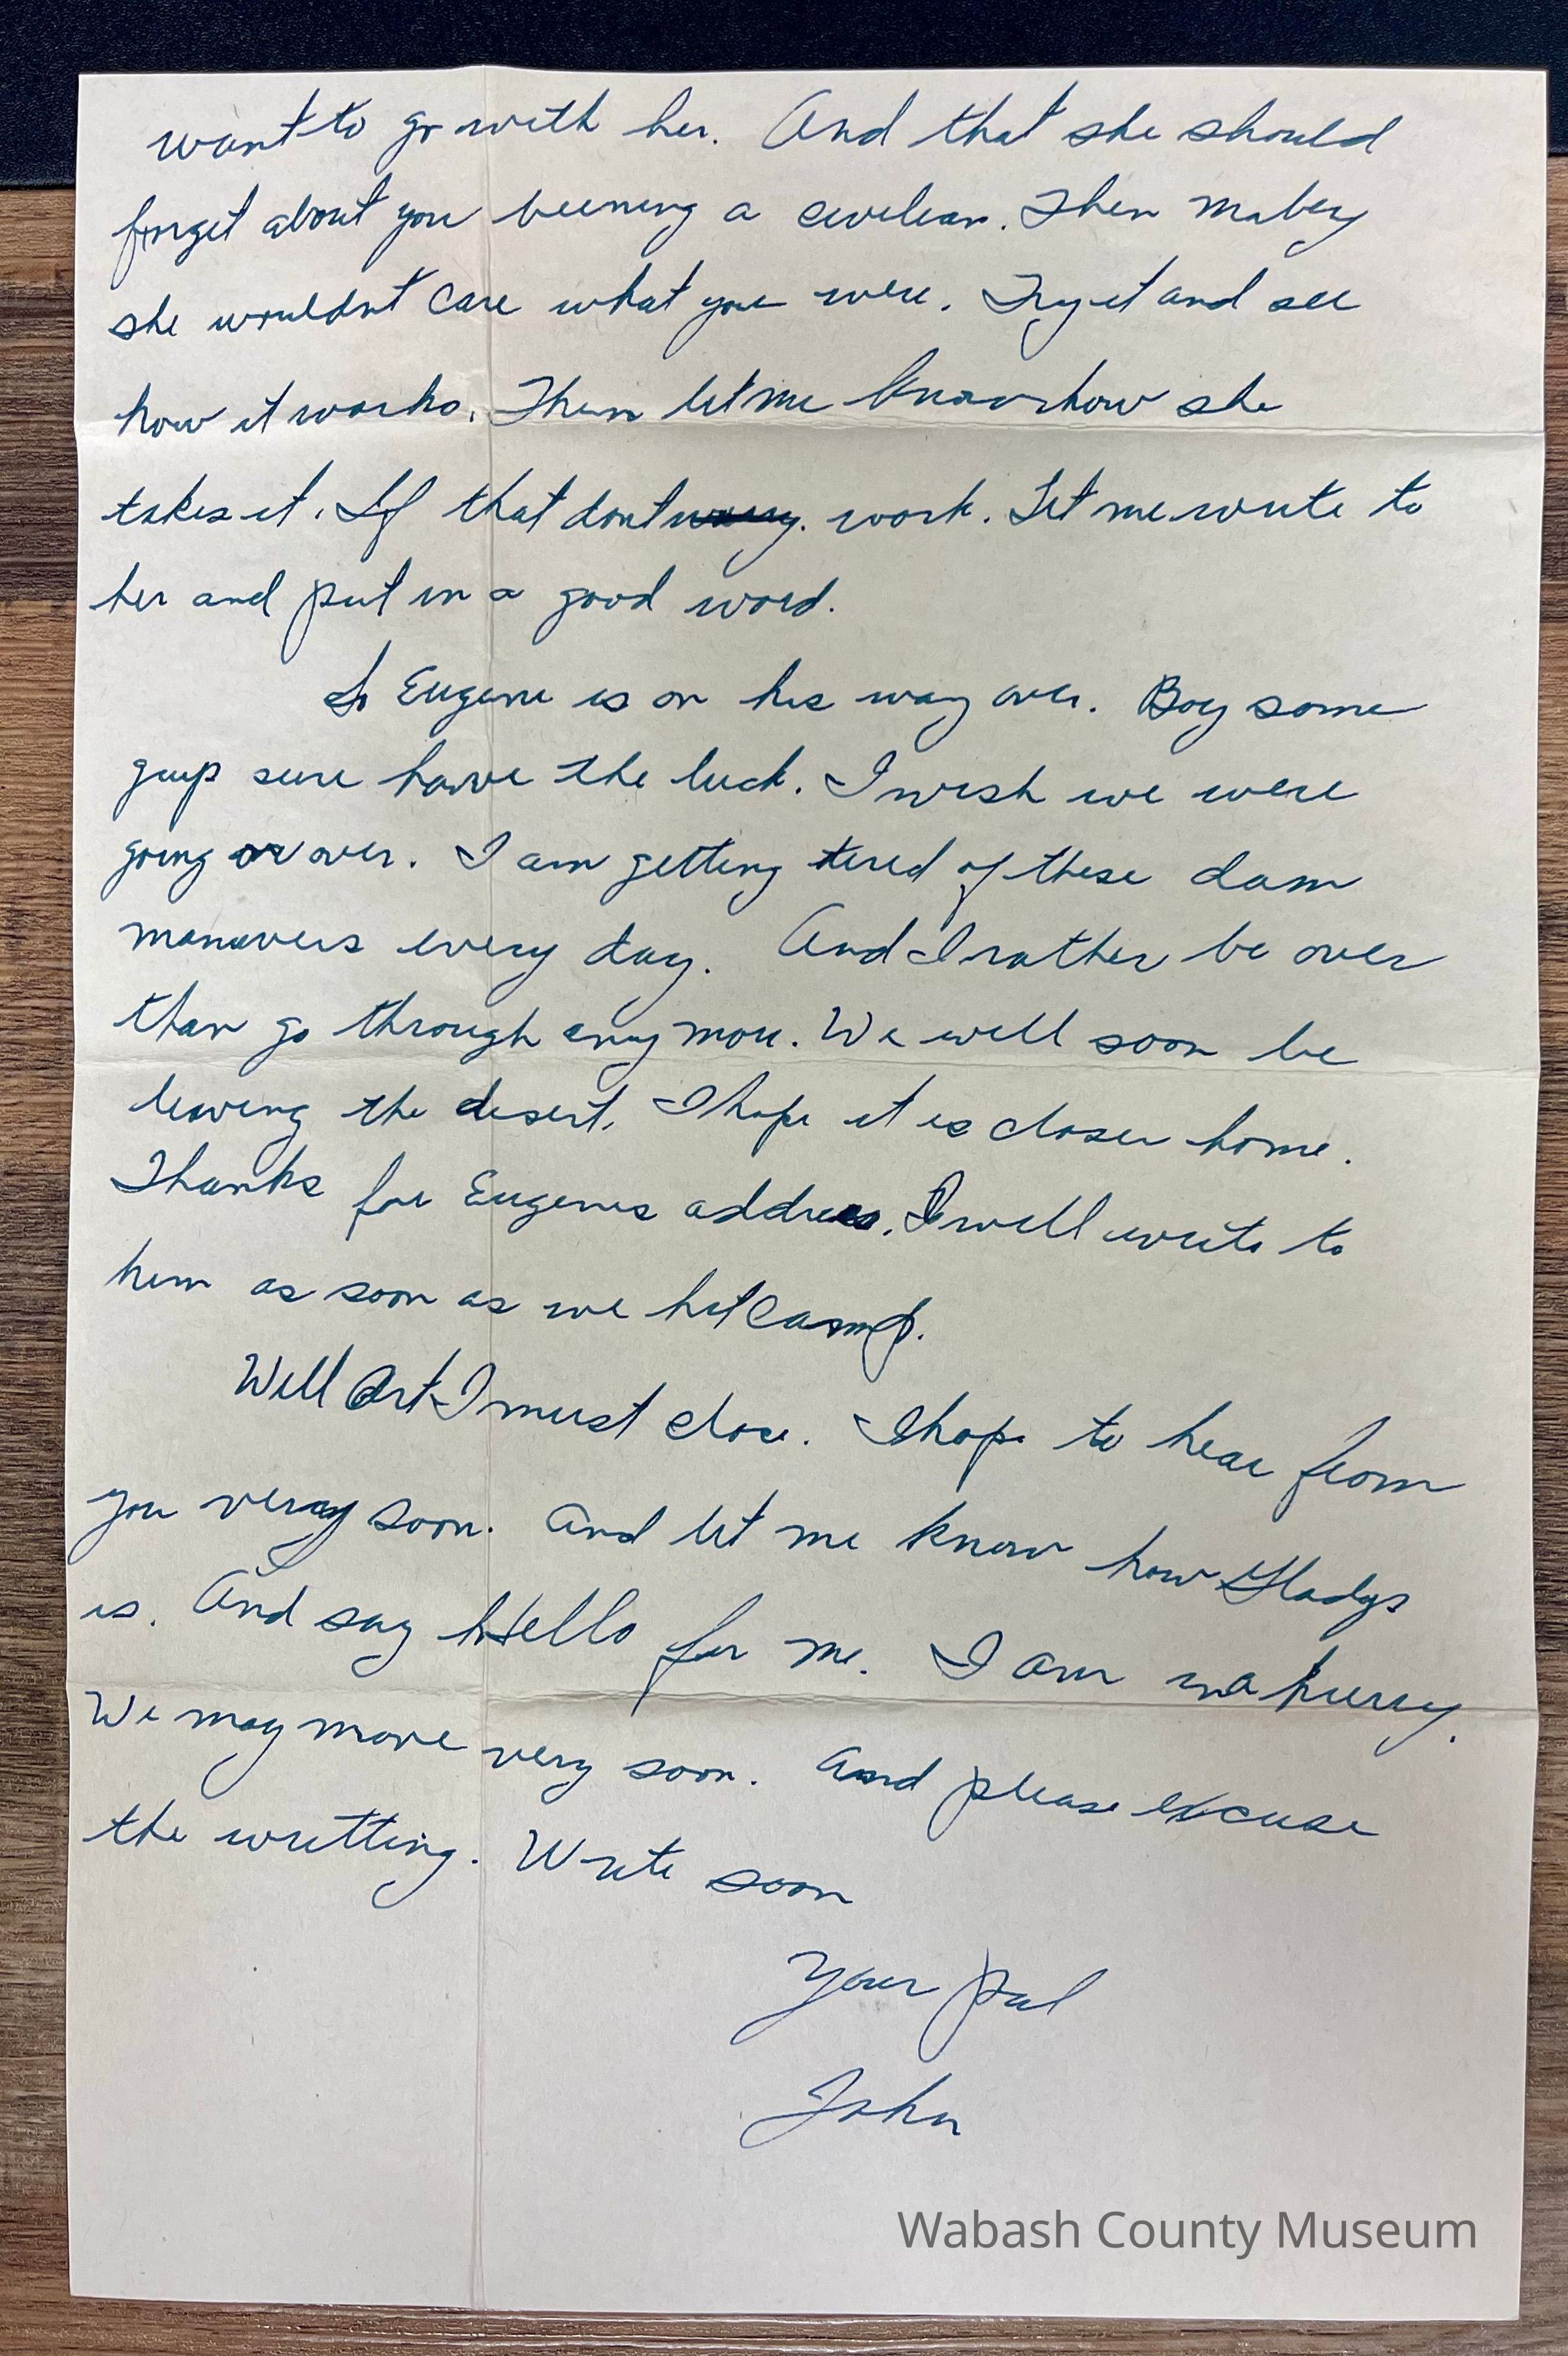 want to go with her. And that she should
forget about you beening a civilian. Then mabey
she wouldnt care what you were. Try it and see
how it works. Then let me know how she
takes it. If that dont worry. work. Let me write to
her and put in a good word.
So Eugene is on his way over. Boy some
guys sure have the luck. I wish we were
going or over. I am getting tired of these dam
manuvers every day. And I rather be over
than go through any more. We will soon be
leaving the desert. I hope it is closer home.
Thanks for Eugenes address. I will write to
him as soon as we hit Camp.
Well Art I must close. I hope to hear from
you very soon. And let me know how Gladys
is. And say Hello for me. I am in a hurry.
We may move very soon. And please excuse
the writting. Write soon
Your Pal
John
Wabash County Museum